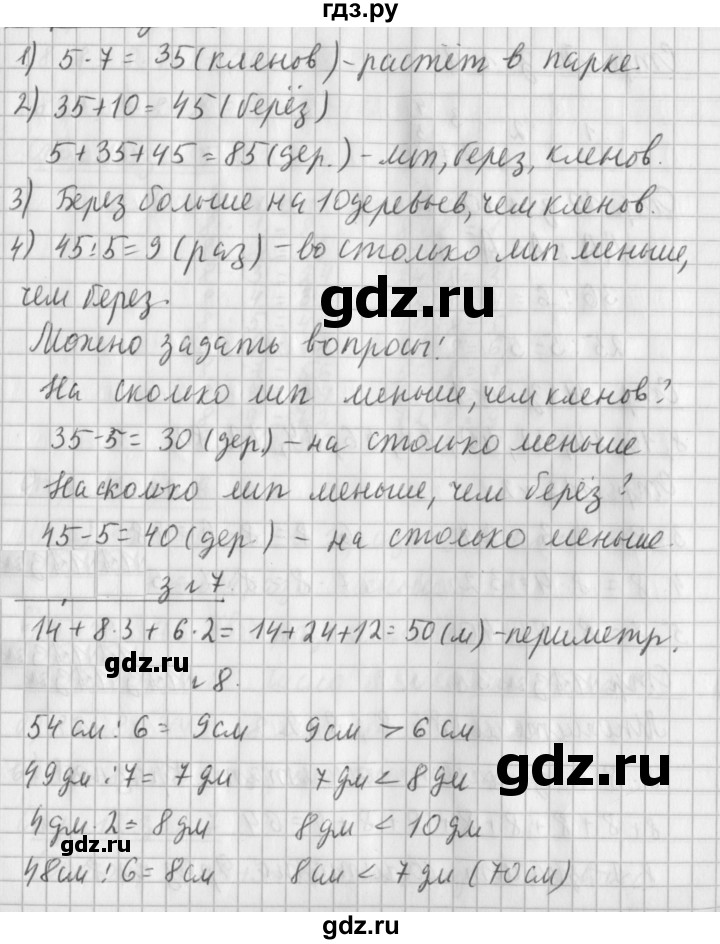 гдз.ру
1) 5·7 = 35 (кленов) - растёт в парке.
2) 35+10 = 45 (берёз)
5+35+45 = 85 (дер.) - лип, берез, кленов.
3) Берез больше на 10 деревьев, чем кленов.
4) 45:5=9 (раз) - во столько лип меньше,
чем берез.
gdz.ru
Можно задать вопросы:
На сколько лип меньше, чем кленов?
35-5= 30 (дер.) - на столько меньше
На сколько лип меньше, чем берёз?
45-5=40 (дер.) - на столько меньше.
7.
14 + 8·3 + 6·2 = 14+24+12 = 50 (м) - периметр.
gdz.ru
8.
54 см : 6 = 9 см 9 см > 6 см
49 дм : 7 = 7 дм 7 дм < 8 дм
gdz.ru
4 дм · 2 = 8 дм 8 дм < 10 дм
gdz.ru
48 см : 6 = 8 см 8 см < 7 дм (70 см)
gdz.ru